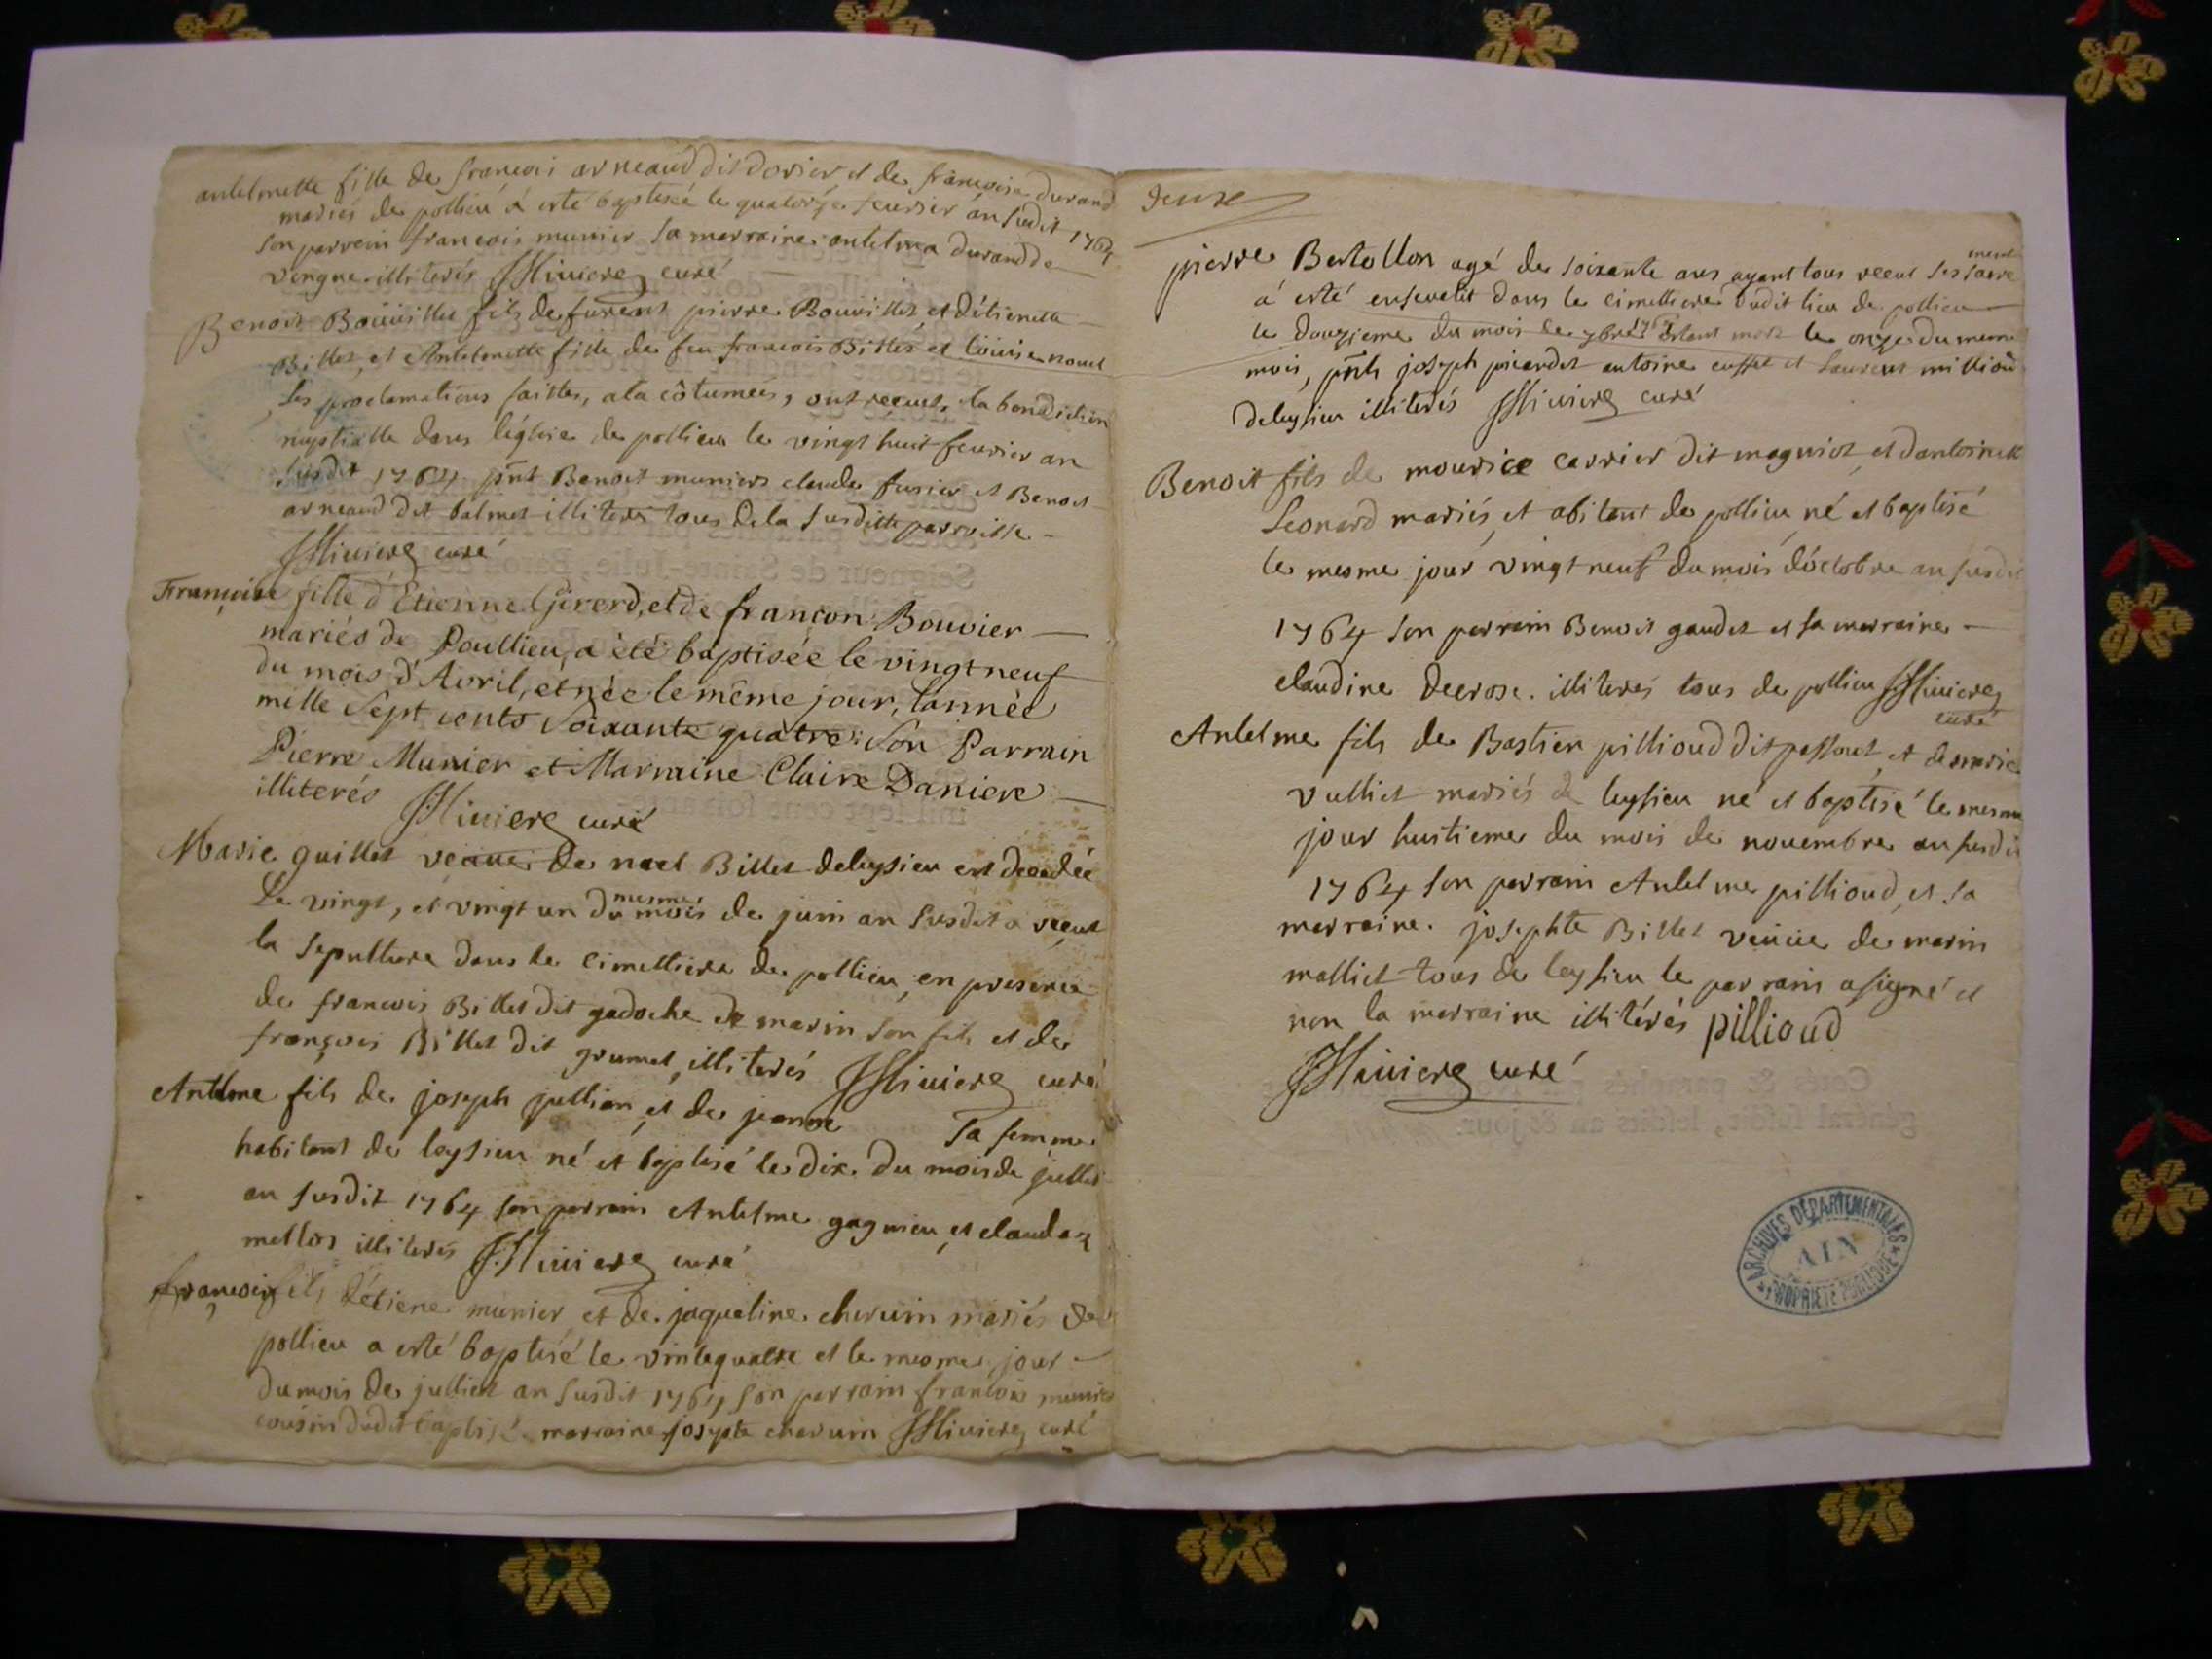 antelmette fille de francois arneaud dit dorier et de francoise durand
mariés de pollieu á esté baptisée le quatorze feurier an susdit 1764
son parrein francois munier sa marraine antelma durand de
vongne illiterés curé
Benoit Bouuillet fils de furent pierre Bouuillet et d'étienette
Billet, et Antelmette fille de feu francois Billet et louise nouel
les proclamations faittes, a la côtumée, ont reçeut la benediction
nuptialle dans l'église de pollieu le vingt huit feurier an
susdit 1764 pnt Benoit muniers claude furier et Benoit
arneaud dit balmet illiterés tous de la susditte parroisse
curé
Françoise fille d'Etienne Girerd, et de françon Bouvier
mariés de Poullieu, a été baptisée le vingt neuf
du mois d'Avril, et née le même jour, l'année
mille Sept cents Soixante quatre: Son Parrain
Pierre Munier et Marraine Claire Daniere
illiterés curé
Marie guillet veaue de noel Billet de leysieu est decedée
Le vingt, et vingt un du mesme mois de juin an susdit a reçeut
la sepulture dans le cimettiere de pollieu, en presence
de francois Billet dit gadoche de marin son fils et de
françois Billet dit grumet, illiterés curé
Antelme fils de joseph jullian, et de jeanne sa femme
habitant de leysieu né et baptisé le dix du mois de jullet
an susdit 1764 son parrain Antelme gagnieu et claudaz
mellor illiterés curé
françois fils d'étiene munier et de jaqueline cheruin mariés de
pollieu a esté baptisé le vintequatre et le mesme jour
du mois de julliet an susdit 1764 son parrain francois munier
cousin dudit baptisé marraine josepte cheruin curé
deuxe
pierre Bertollon agé de soixante ans ayant tous receut ses sacrement
á esté enseuelit dans le cimettiere dudit lieu de pollieu
le douzieme du mois de 7bre 1764 estant mort le onze du meme
mois, pnts joseph picardet antoine cusset et Laurent millioud
de leysieu illiterés curé
Benoit fils de mourice carrier dit magniot, et d'antoinette
Leonard mariés, et abitant de pollieu né et baptisé
le mesme jour vingt neuf du mois d'octobre an susdit
1764 son parrein Benoit gaudet et sa marraine
claudine decrose. illiterés tous de pollieu
curé
Antelme fils de Bastien pillioud dit passout, et de marie
vulliet mariés de leysieu né et baptisé le mesme
jour huitieme du mois de nouembre an susdit
1764 son parrain Antelme pillioud, et sa
marraine josephte Billet veuue de marin
malliet tous de leysieu le parrain a signé et
non la marraine illitérés pillioud
curé
ARCHIVES DÉPARTEMENTALES
AIN
PROPRIÉTÉ PUBLIQUE